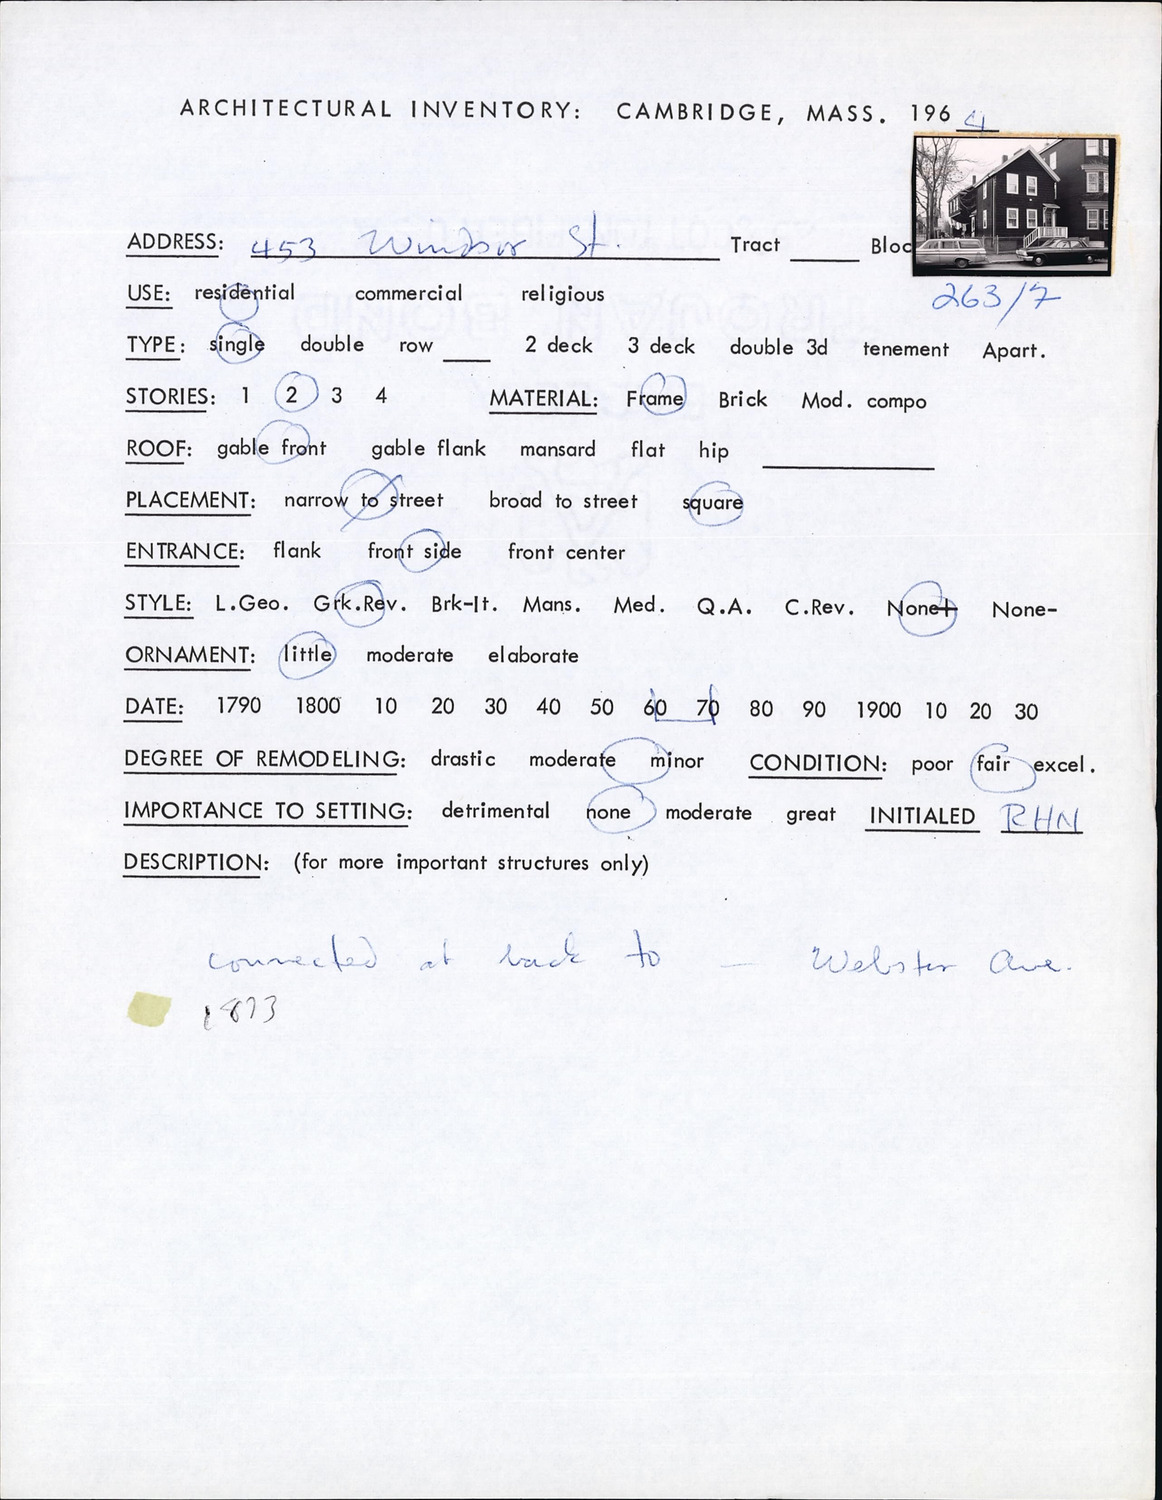 ARCHITECTURAL INVENTORY: CAMBRIDGE, MASS. 1964
ADDRESS: 453 Windsor St. Tract Bloc
263/7
USE: residential commercial religious
TYPE: single double row 2 deck 3 deck double 3d tenement Apart.
STORIES: 1 2 3 4 MATERIAL: Frame Brick Mod. compo
ROOF: gable front gable flank mansard flat hip
PLACEMENT: narrow to street broad to street square
ENTRANCE: flank front side front center
STYLE: L.Geo. Grk.Rev. Brk-It. Mans. Med. Q.A. C.Rev. None+ None-
ORNAMENT: little moderate elaborate
DATE: 1790 1800 10 20 30 40 50 60 70 80 90 1900 10 20 30
DEGREE OF REMODELING: drastic moderate minor CONDITION: poor fair excel.
IMPORTANCE TO SETTING: detrimental none moderate great INITIALED RHN
DESCRIPTION: (for more important structures only)
connected at back to — Webster Ave.
1873